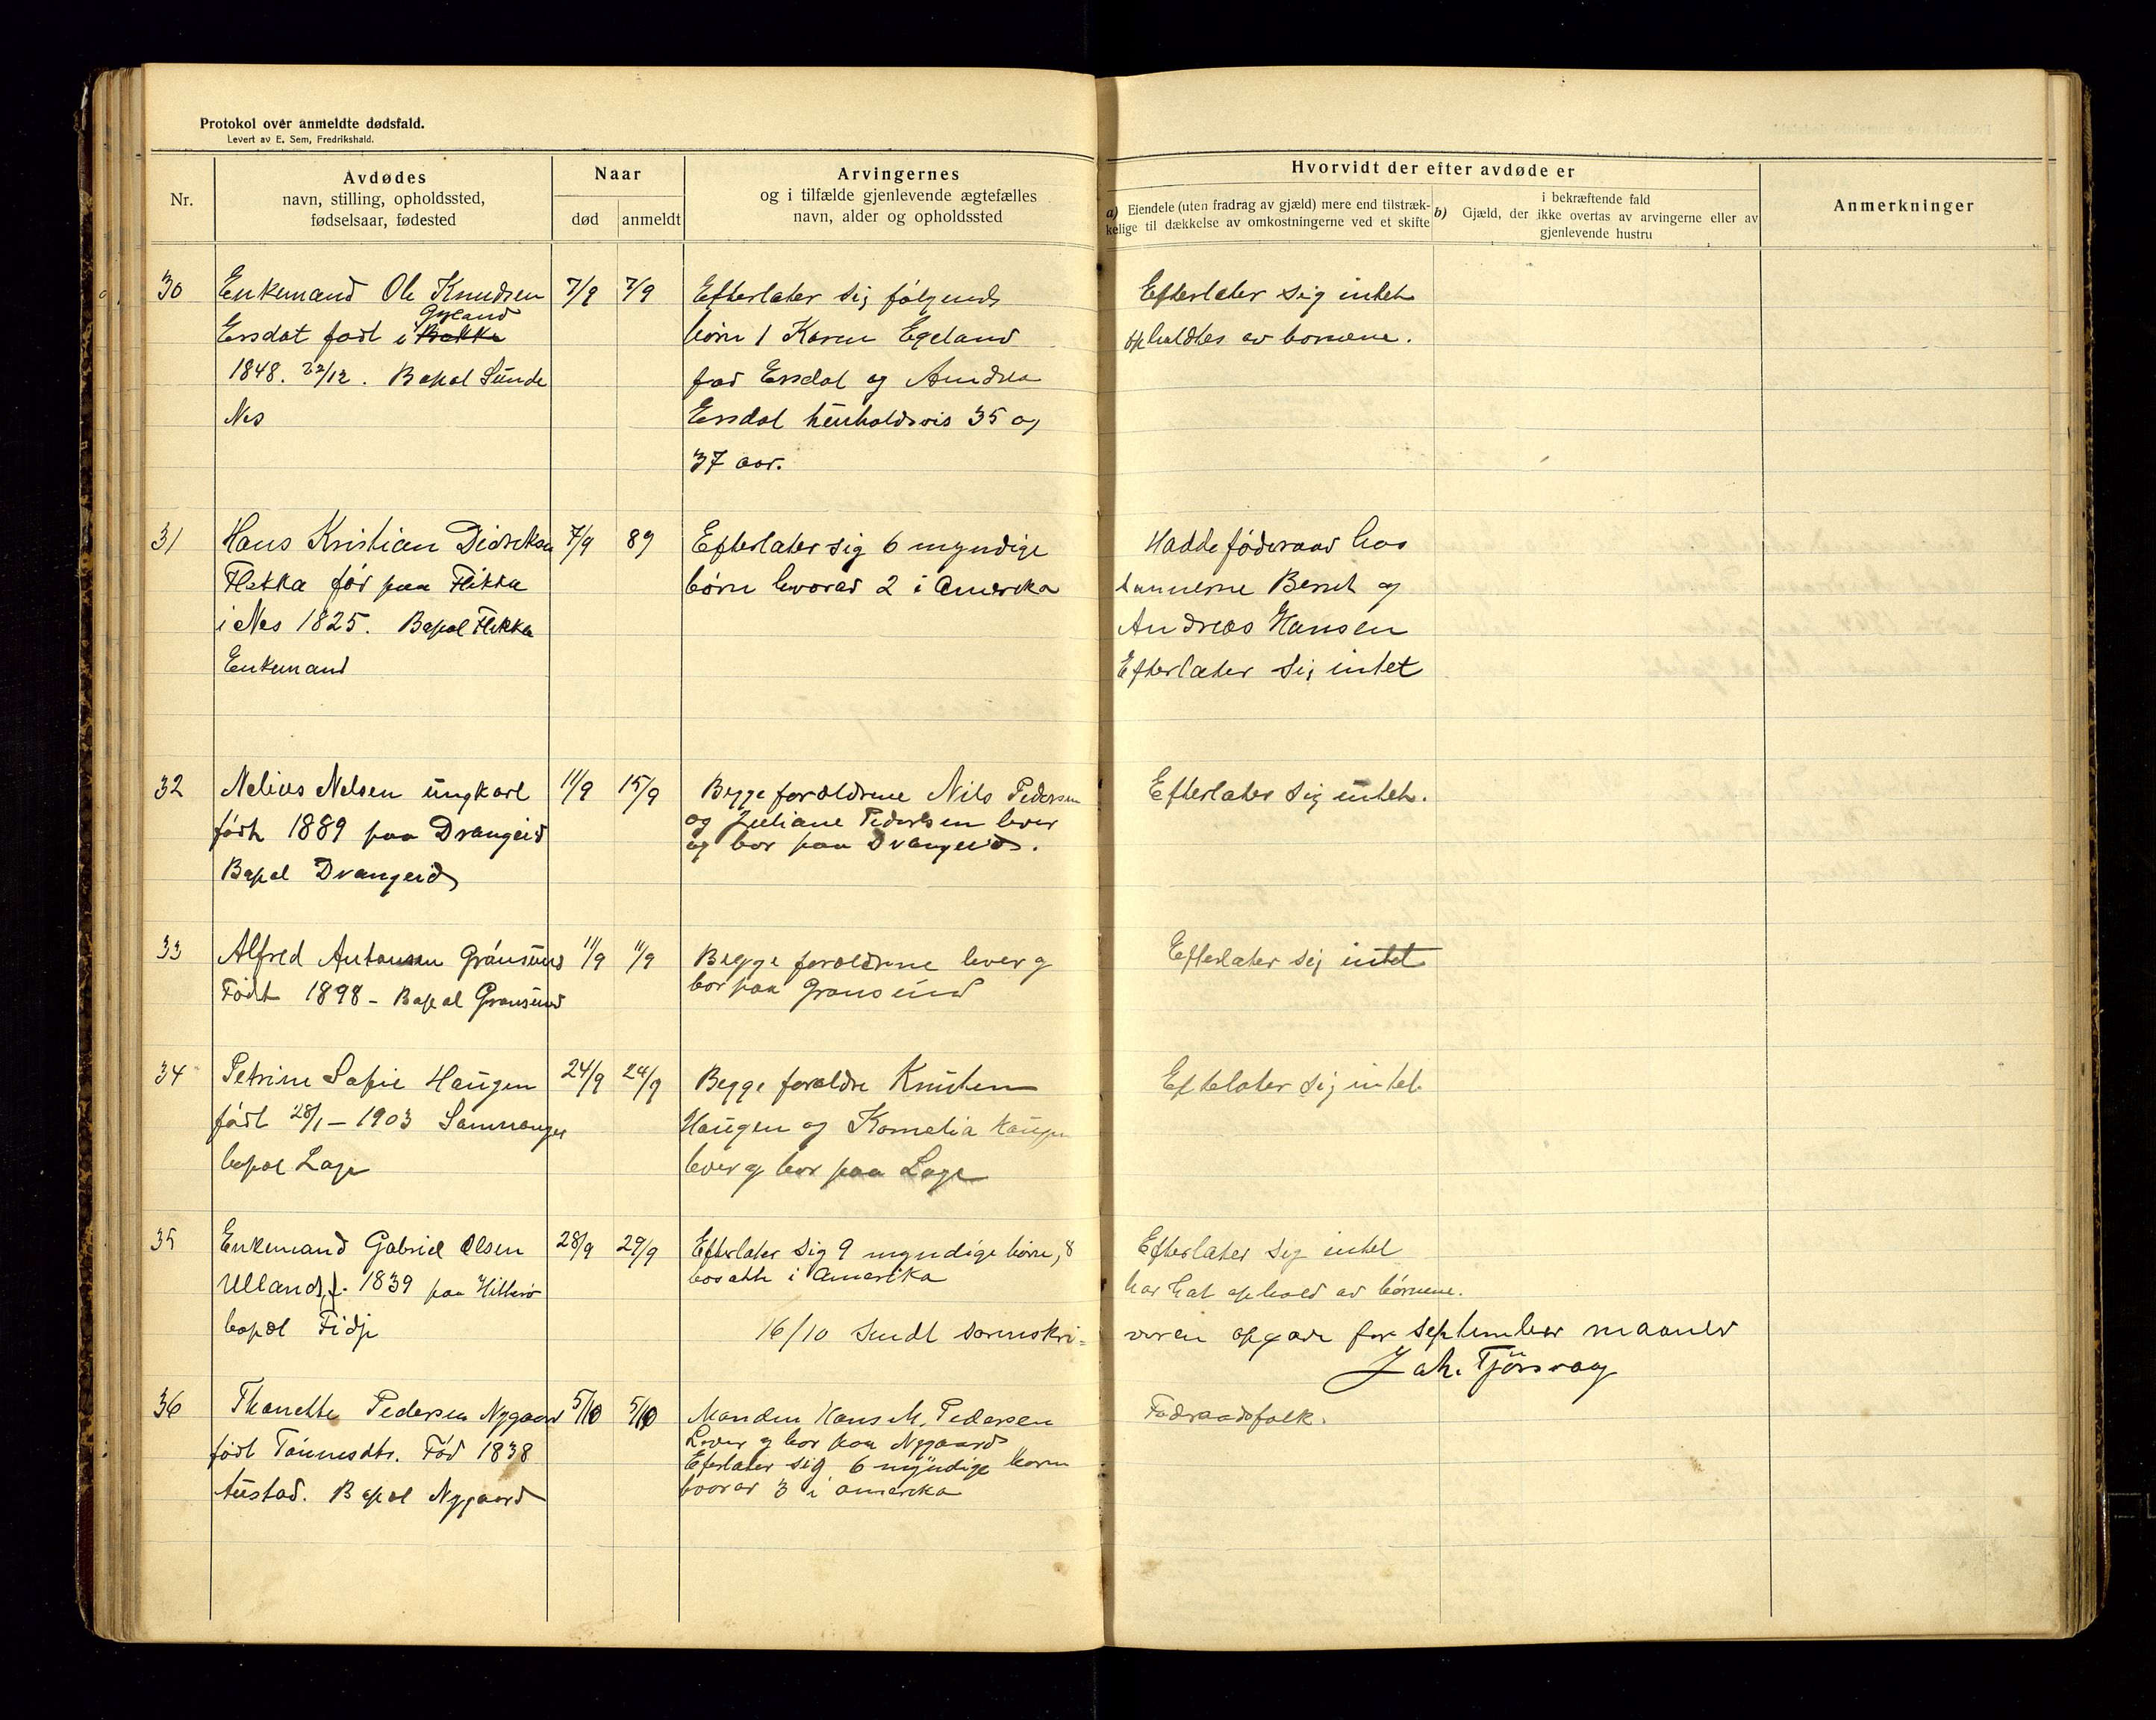 Protokol over anmeldte dødsfald.
Levert av E. Sem, Fredrikshald.
Nr.
Avdødes
navn, stilling, opholdssted,
fødselsaar, fødested
Naar
død
anmeldt
Arvingernes
og i tilfælde gjenlevende ægtefælles
navn, alder og opholdssted
Hvorvidt der efter avdøde er
a) Eiendele (uten fradrag av gjæld) mere end tilstræk-
kelige til dækkelse av omkostningerne ved et skifte
b) i bekræftende fald
Gjæld, der ikke overtas av arvingerne eller av
gjenlevende hustru
Anmerkninger
30
Enkemand Ole Knudsen
Gyland
Ersdal født i Bakke
1848. 22/12. Bopæl Sunde
Nes
7/9
7/9
Efterlater sig følgende
børn 1 Karen Egeland
fød Ersdal og Andrea
Ersdal henholdsvis 35 og
37 aar.
Efterlater sig intet
opholdtes av børnene.
31
Hans Kristian Didriksen
Flikka fød paa Flikka
i Nes 1825. Bopæl Flikka
Enkemand
7/9
8 9
Efterlater sig 6 myndige
børn hvorav 2 i Amerika
Hadde føderaad hos
sønnerne Bernt og
Andreas Hansen
Efterlater sig intet
32
Nelius Nelsen ungkarl
født 1889 paa Drangeid
Bopæl Drangeid
11/9
15/9
Begge forældrene Nils Pedersen
og Juliane Pedersen lever
og bor paa Drangeid.
Efterlater sig intet.
33
Alfred Antonsen Grønsund
Født 1898 - Bopæl Grønsund
11/9
11/9
Begge forældrene lever og
bor paa Grønsund
Efterlater sig intet
34
Petrine Sofie Haugen
født 28/1 - 1903 Samnanger
bopæl Loge
24/9
24/9
Begge forældre Knut
Haugen og Kornelia Haugen
lever og bor paa Loge
Efterlater sig intet
35
Enkemand Gabriel Olsen
Ulland, f. 1839 paa Hitterø
bopæl Fidje
28/9
29/9
Efterlater sig 9 myndige børn, 8
bosatte i Amerika
Efterlater sig intet
har hat ophold av børnene.
16/10 Sendt sorenskri-
veren opgave for september maaned
Joh. Tjørsvaag
36
Thonette Pedersen Nygaard
født Tønnesdtr. Fød 1838
Austad. Bopæl Nygaard
5/10
5/10
Manden Hans M. Pedersen
Lever og bor paa Nygaard
Efterlater sig 6 myndige børn
hvorav 3 i amerika
Føderaadsfolk.